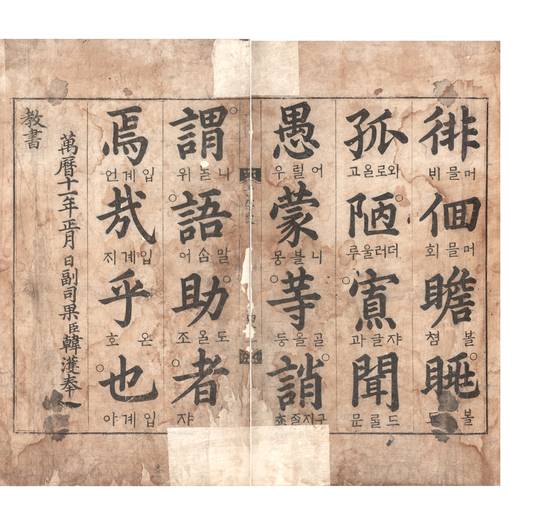 徘 머믈 비
佪 머믈 회
瞻 볼 쳠
眺 볼
孤 고
陋 더러울 루
寡 쟈글 과
聞 문
愚 어릴 우
蒙 니블 몽
等 골올 등
誚 구지즐
謂 위
語 말ᄉᆞᆷ 어
助 도올 조
者 쟈
焉 입계 언
哉 입계 ᄌᆡ
乎 온 호
也 입계 야
萬曆十一年正月 日副司果臣韓濩奉
教書